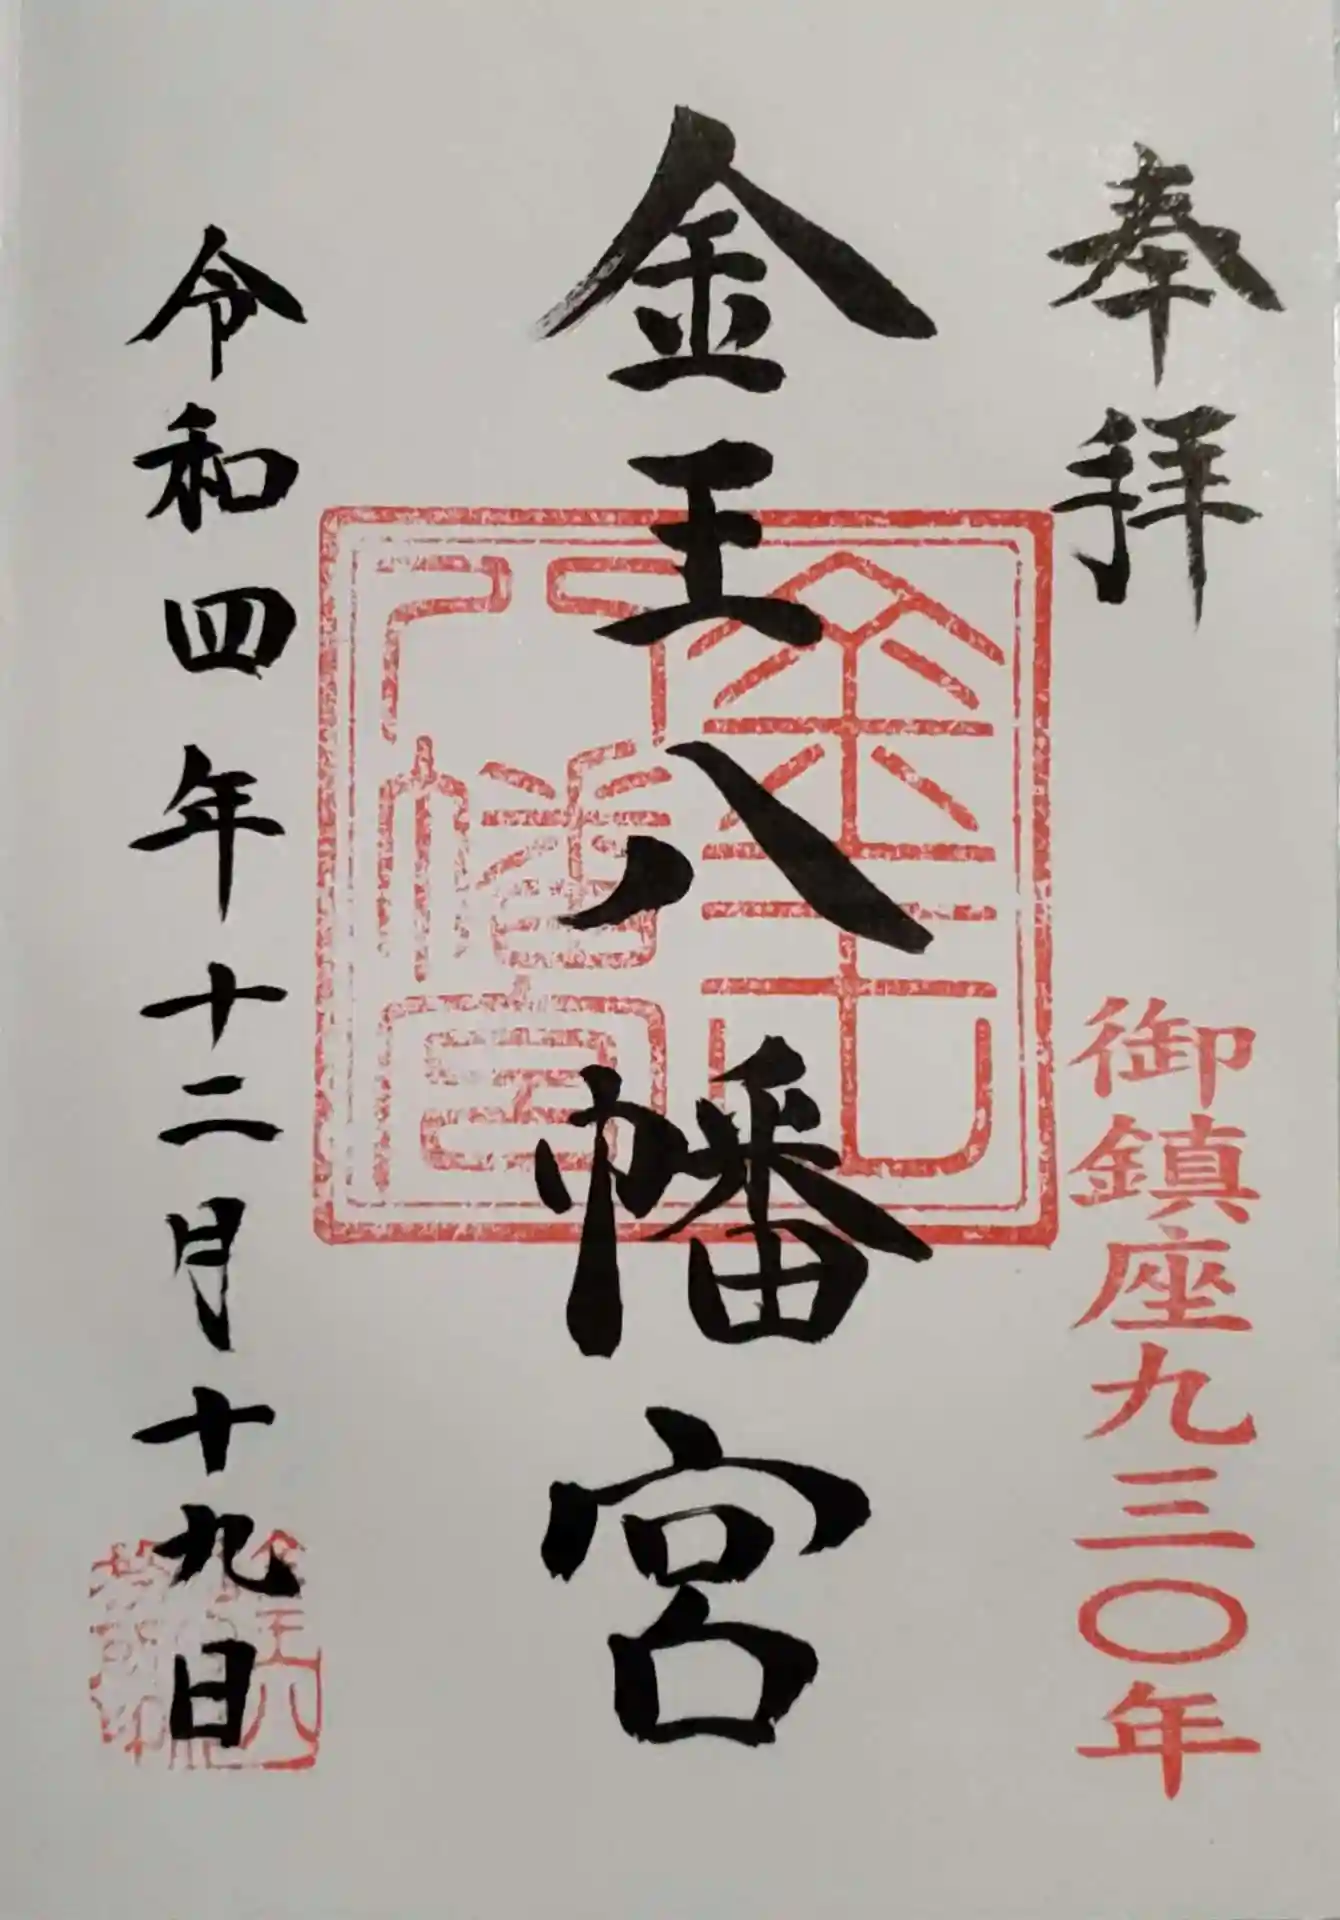 奉拝
御鎮座九三〇年
金王八幡宮
金王
八幡宮
令和四年十二月十九日